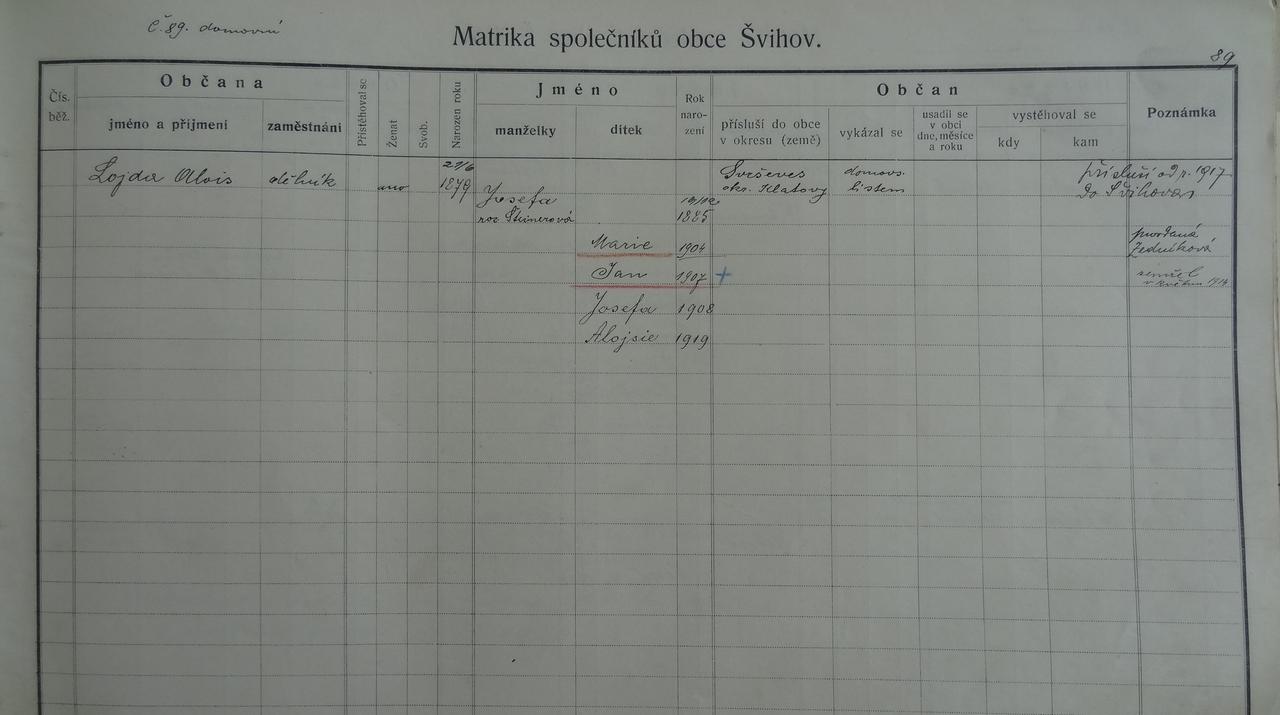 Č. 89. domovní
Matrika společníků obce Švihov.
89
Čís. běž.
Občana
jméno a přijmení
zaměstnání
Přistěhoval se
Ženat
Svob.
Narozen roku
Jméno
manželky
dítek
Rok naro- zení
Občan
přísluší do obce v okresu (země)
vykázal se
usadil se v obci dne, měsíce a roku
vystěhoval se
kdy
kam
Poznámka
Lojda Alois
dělník
ano
27/6
1879
Svrčeves
okr. Klatovy
domovs.
listem
přísluší od r. 1917
do Švihova
Josefa
roz. Steinerová
1885
Marie 1904
provdaná
Zedníková
Jan 1907 +
zemřel
v květnu 1914
Josefa 1908
Alojsie 1919